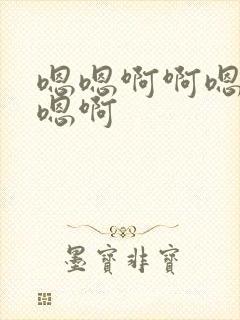 嗯嗯啊啊嗯
嗯啊
墨寶非寶